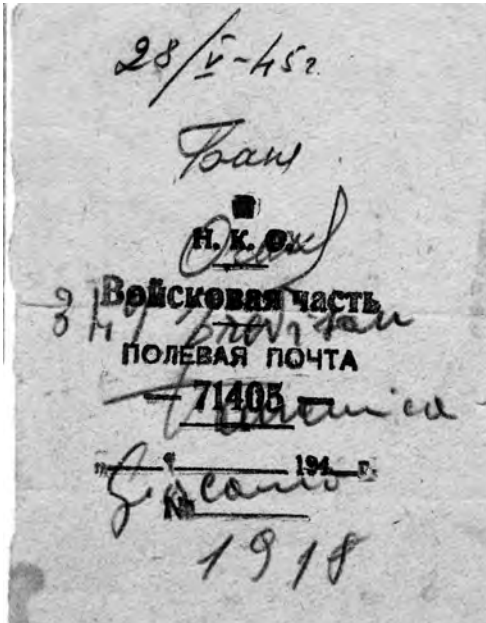 28/V-45г.
Баня
Н. К. О.
Войсковая часть
ПОЛЕВАЯ ПОЧТА
— 71405 —
„ “ 194 г.
Giacomo
№
1918